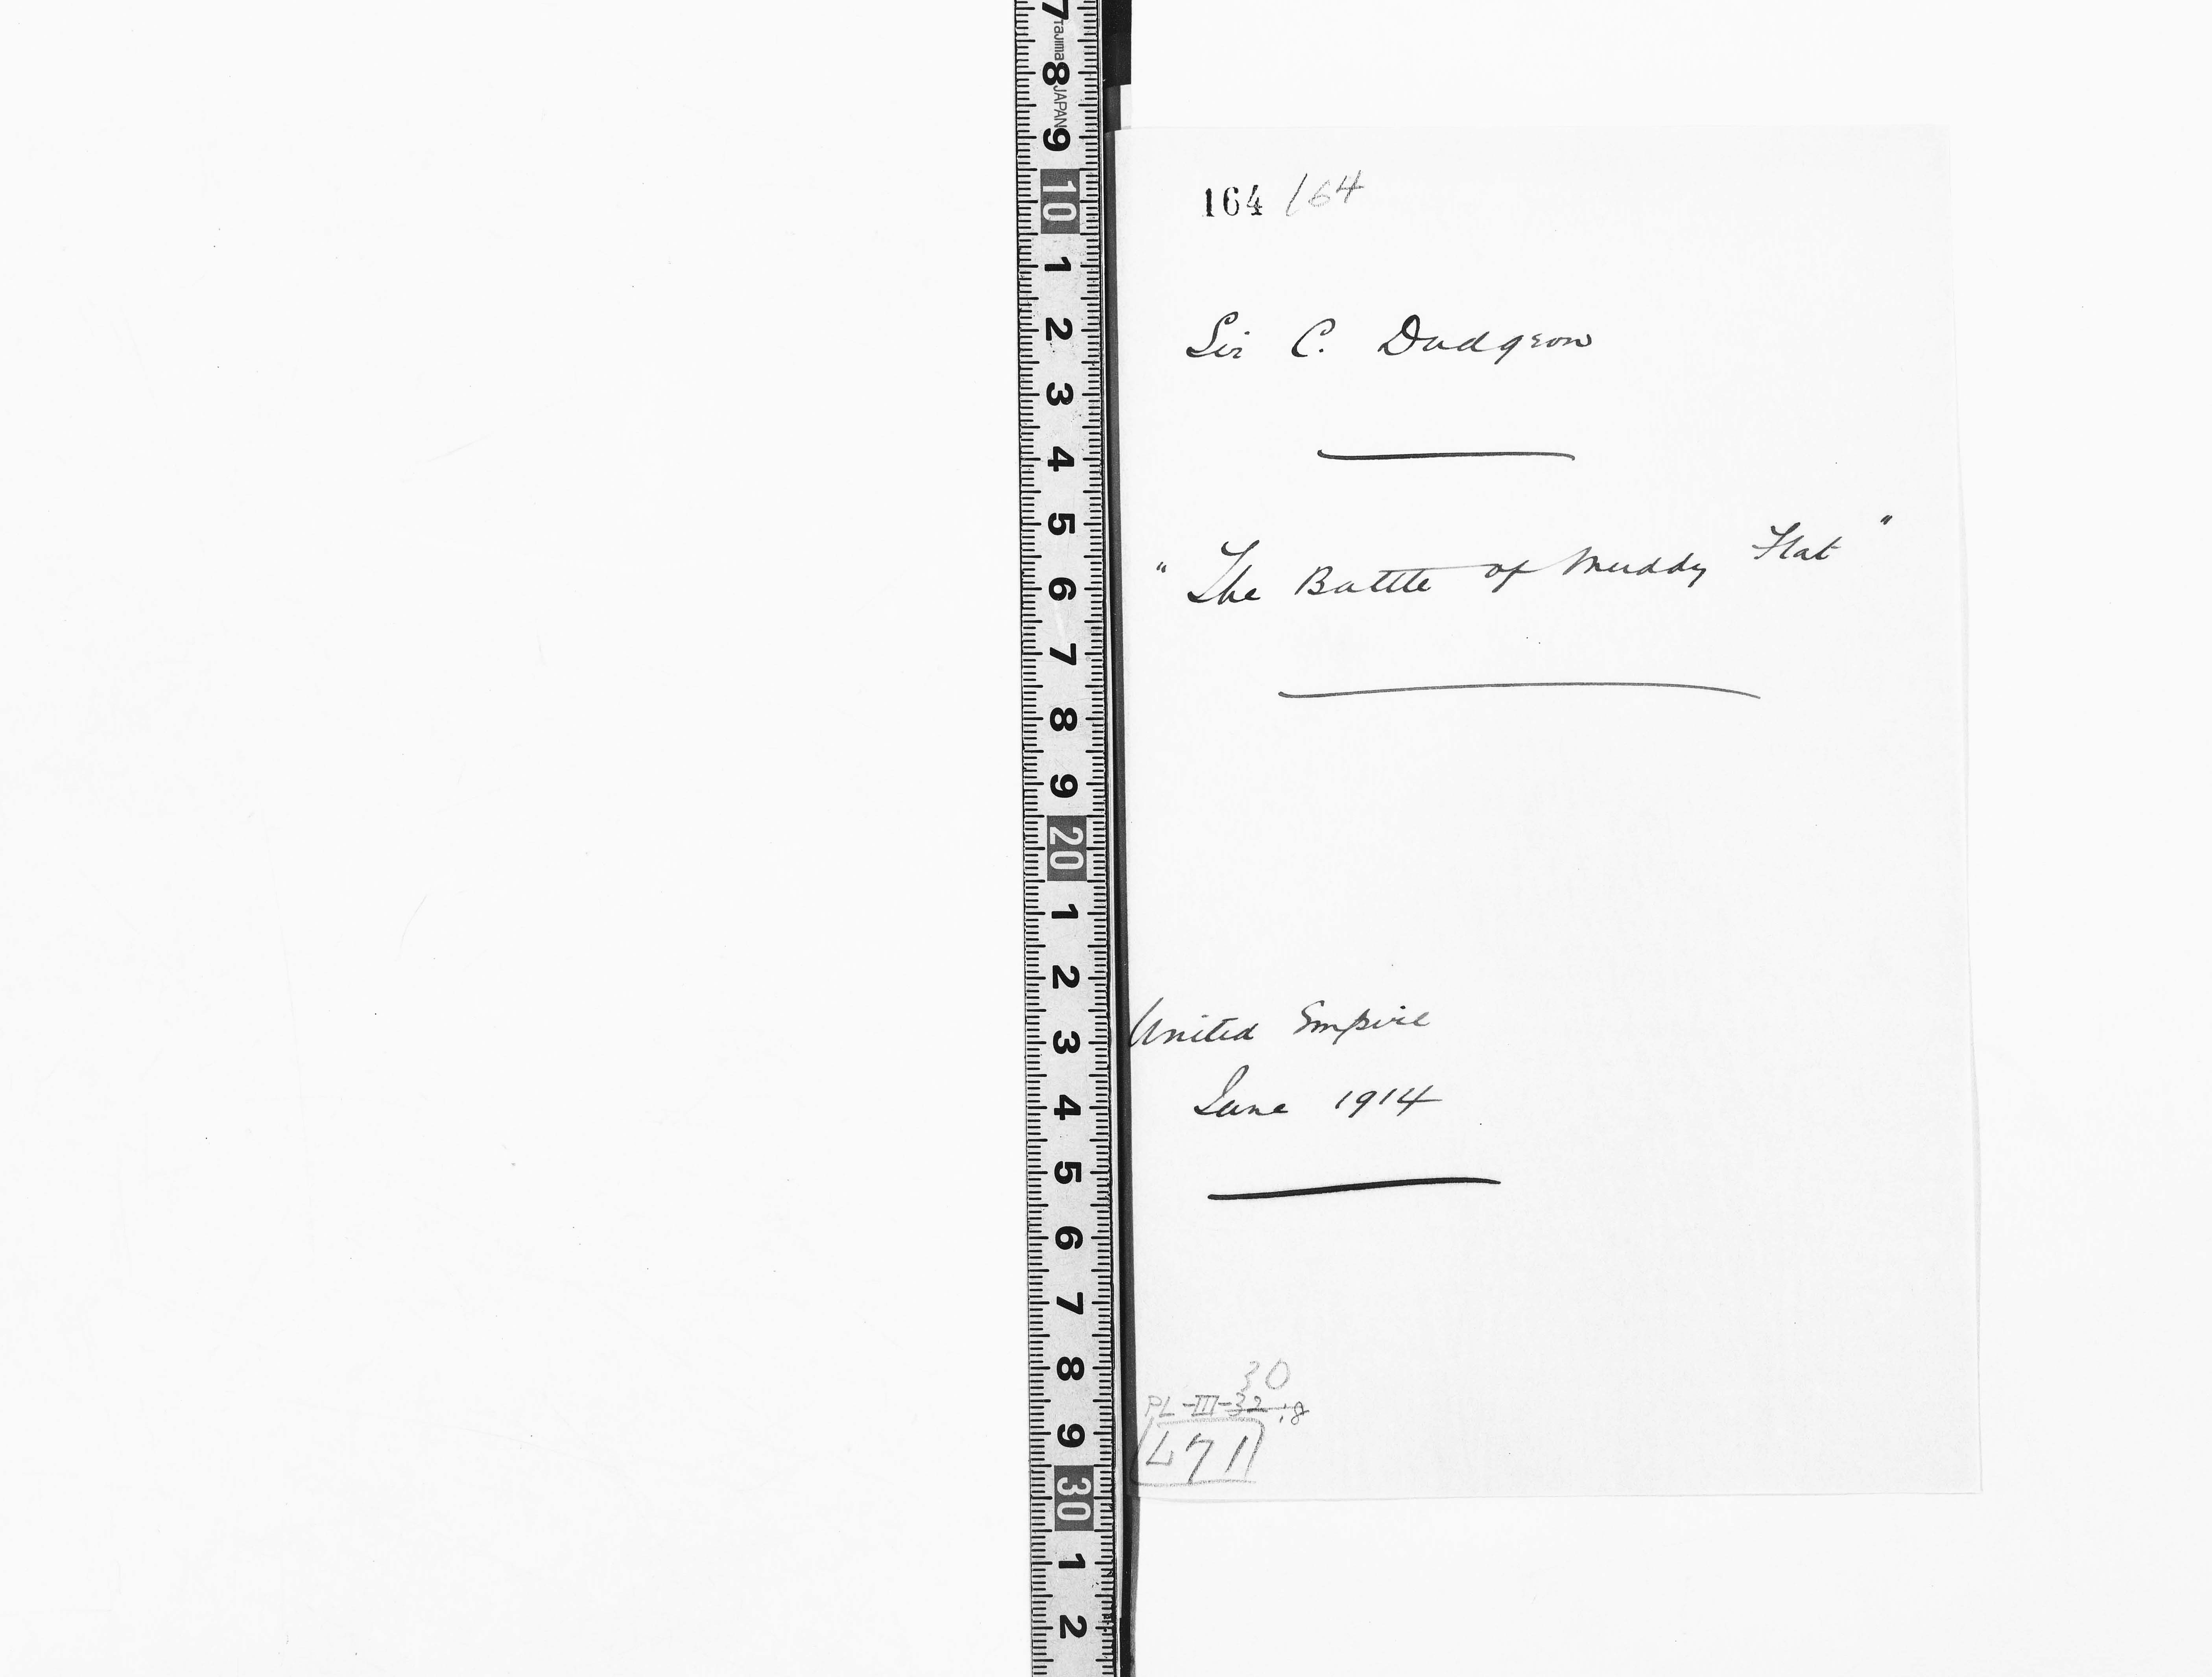 7 8 9 10 1 2 3 4 5 6 7 8 9 20 1 2 3 4 5 6 7 8 9 30 1 2
Tajima JAPAN
164 164
Sir C. Dudgeon
"The Battle of Muddy Flat"
United Empire
June 1914
30
PL-III-32-18
471